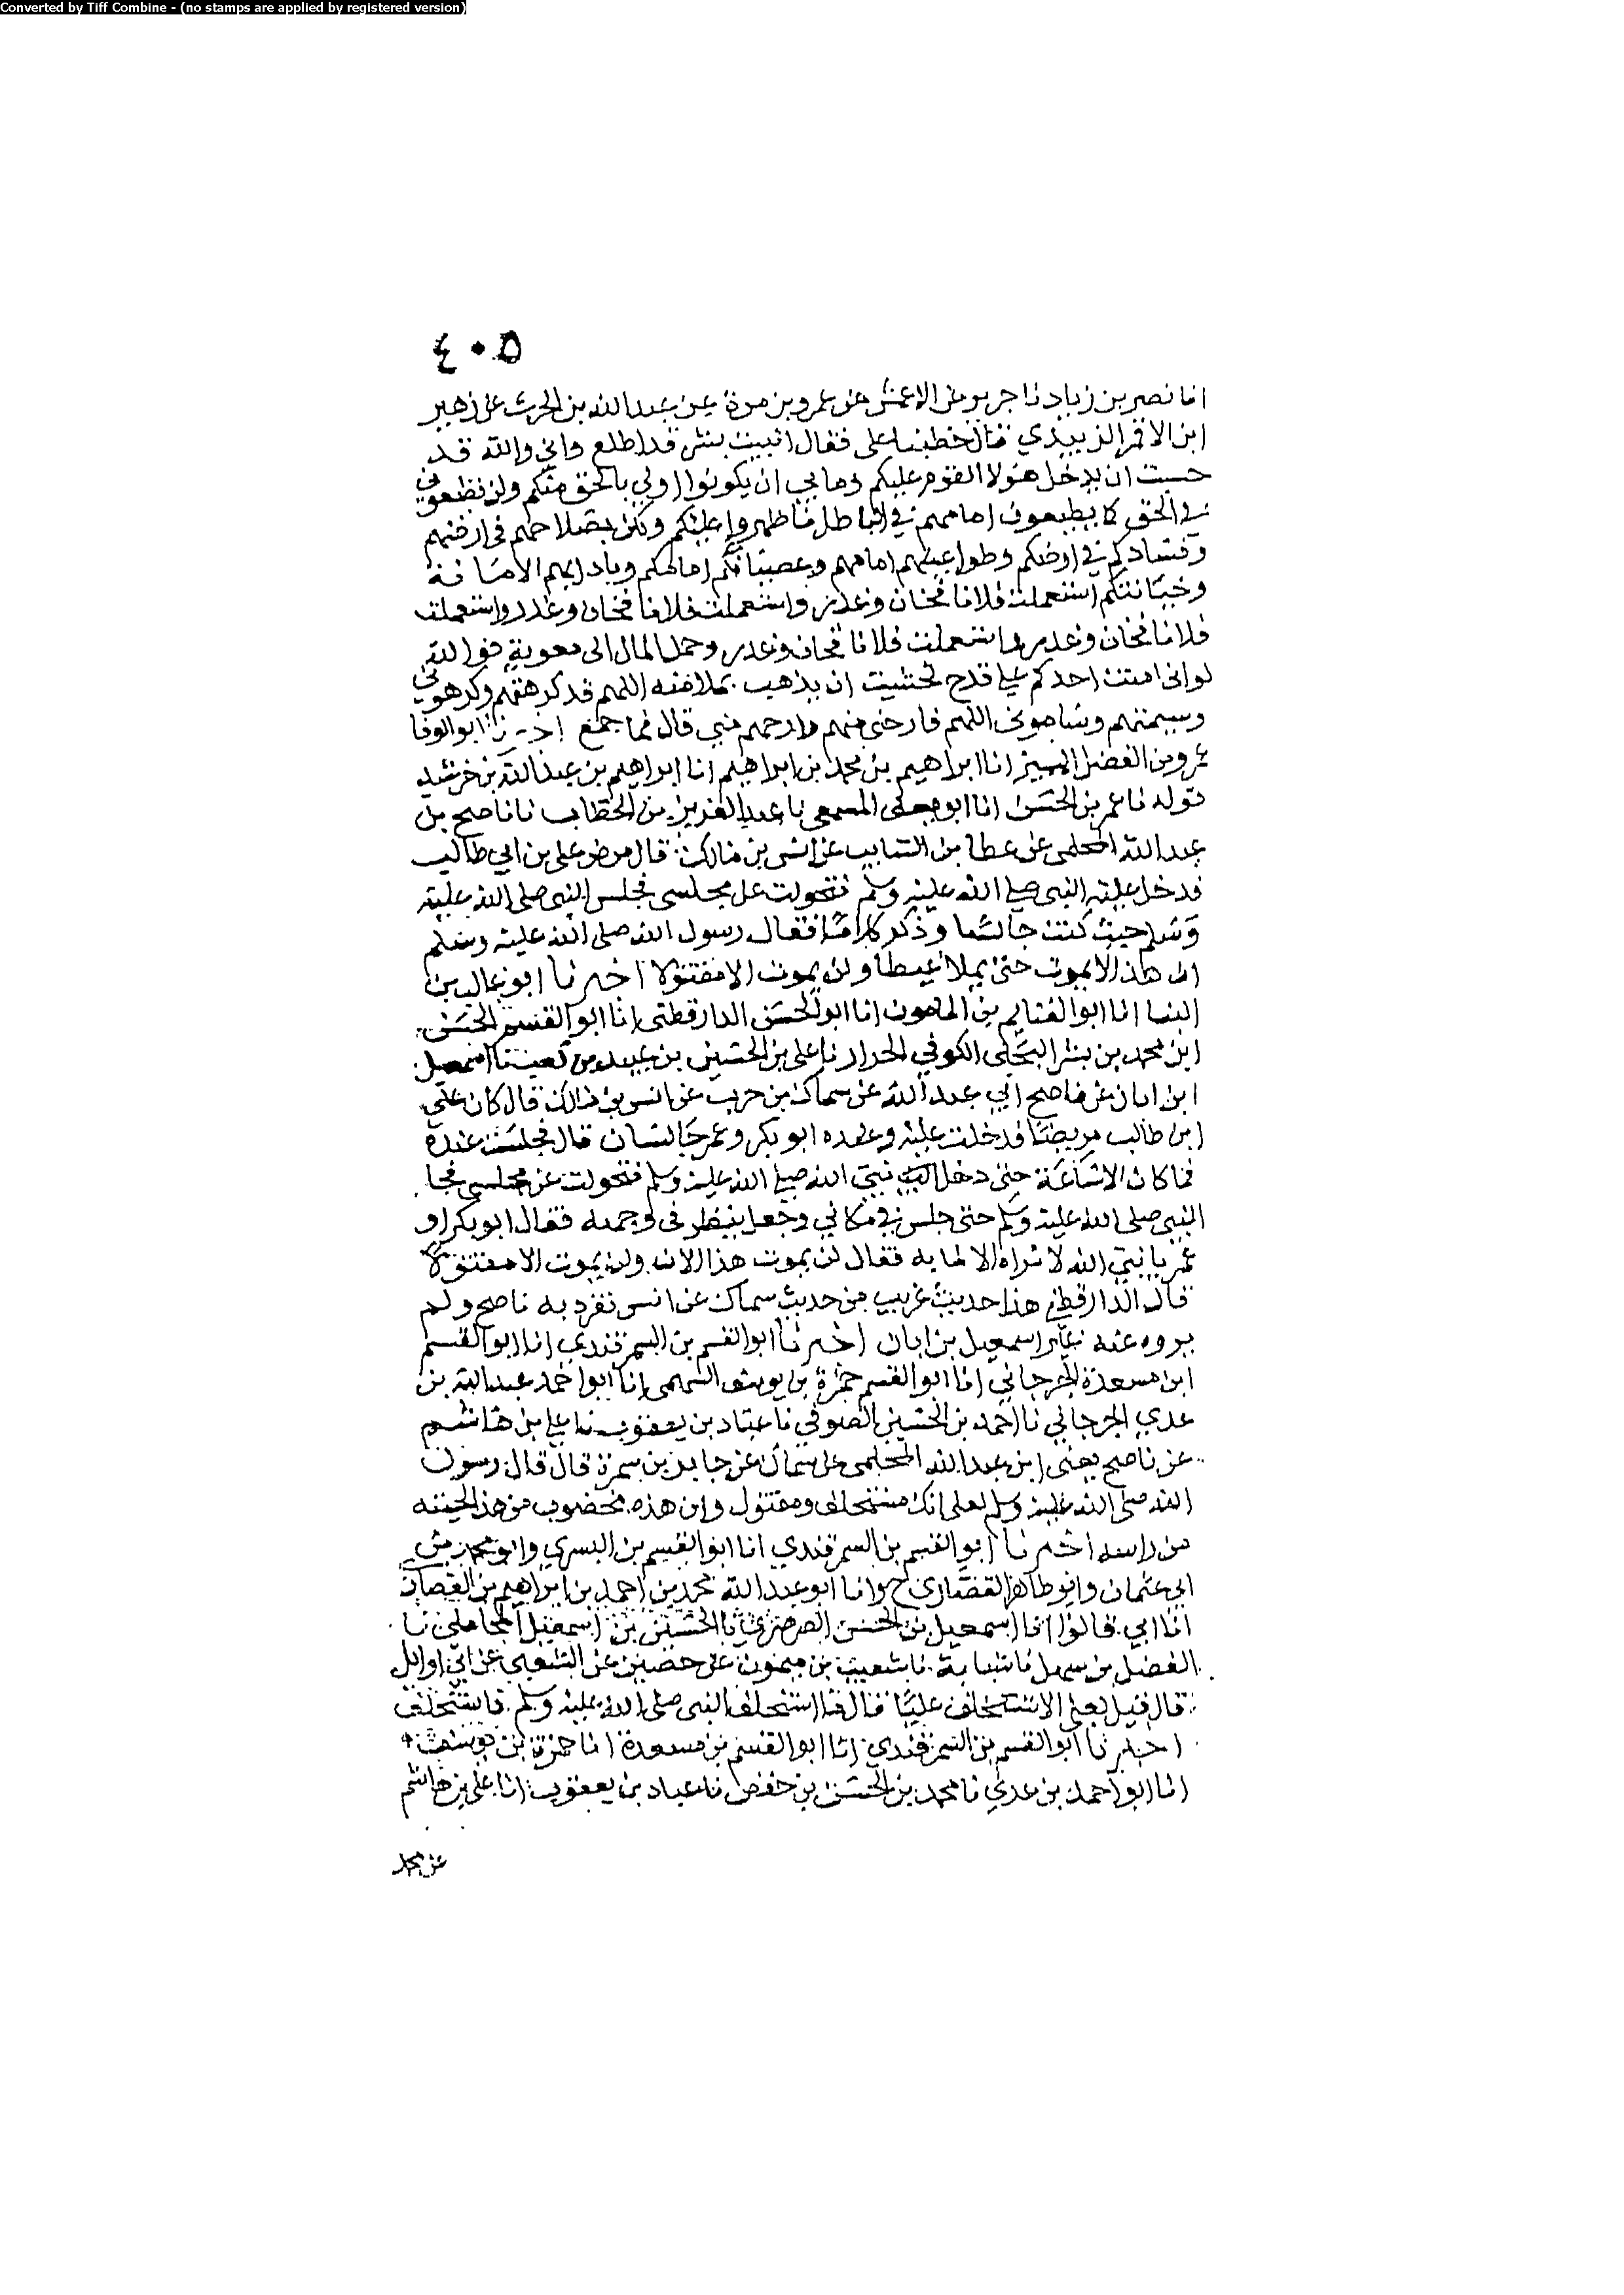 Converted by Tiff Combine - (no stamps are applied by registered version)
٤٠٥
انا نصر بن زياد نا جرير عن الاعمش عن عمرو بن مرة عن عبد الله بن الحرث عن زهير
ابن الاقمر الزبيدي قال خطبنا علي فقال انبيت بسر قد اطلع واني والله قد
حسبت ان يدخل هولا القوم عليكم وما بي ان يكونوا اولي بالحق منكم ولن تطيعوني
في الحق كما يطيعون امامهم في الباطل فما ظهروا عليكم ولكن بصلاحهم في ارضهم
وفسادكم في ارضكم وطواعيتهم امامهم وعصيانكم امامكم وبادايهم الامانة
وخيانتكم استعملت فلانا فخان وغدر واستعملت فلانا فخان وغدر واستعملت
فلانا فخان وغدر واستعملت فلانا فخان وغدر وحمل المال الى معوية فوالله
لو اني امنت احدكم على قدح لخشيت ان يذهب بعلاقته اللهم قد كرهتهم وكرهوني
وسيمتهم وساموني اللهم فارحني منهم وارحهم مني قال فما جمع نا ابو الوفا
عمر بن الفضل انا ابراهيم بن محمد بن ابراهيم انا ابراهيم بن عبد الله بن خرشيد
قوله نا عمر بن الحسن انا ابو يعلى المسمعي نا عبد العزيز بن الخطاب نا ناصح بن
عبد الله المحلمي عن عطا بن السايب عن انس بن مالك قال مرض علي بن ابي طالب
فدخل عليه النبي صلى الله عليه وسلم فتحولت عن مجلسي فجلس النبي صلى الله عليه
وسلم حيث كنت جالسا وذكر كلاما فقال رسول الله صلى الله عليه وسلم
ان هذا لا يموت حتى يملا غيظا ولن يموت الا مقتولا اخبرنا ابو غالب بن
البنا انا ابو الغنايم بن المامون انا ابو الحسن الدارقطني انا ابو القسم الحسن
ابن محمد بن بشر البجلي الكوفي الخزاز نا علي بن الحسين بن عبيد بن كعب نا اسمعيل
ابن ابان عن ناصح ابي عبد الله عن سماك بن حرب عن انس بن مالك قال كان علي
ابن طالب مريضا فدخلت عليه وعنده ابو بكر وعمر جالسان قال فجلست عنده
فما كان الا ساعة حتى دخل نبي الله صلى الله عليه وسلم فتحولت عن مجلسي فجا
النبي صلى الله عليه وسلم حتى جلس في مكاني وجعل ينظر في وجهه فقال ابو بكر او
عمر يا نبي الله لا نراه الا لما به فقال لن يموت هذا الان ولن يموت الا مقتولا
قال الدارقطني هذا حديث غريب من حديث سماك عن انس تفرد به ناصح ولم
يروه عنه غير اسمعيل بن ابان اخبرنا ابو القسم بن السمرقندي انا ابو القسم
ابن مسعدة الجرجاني انا ابو القسم حمزة بن يوسف السهمي انا ابو احمد عبد الله بن
عدي الجرجاني نا احمد بن الحسين الصوفي نا عباد بن يعقوب نا علي بن هاشم
عن ناصح يعني ابن عبد الله المحلمي عن سماك عن جابر بن سمرة قال قال رسول
الله صلى الله عليه وسلم لعلي انك مستخلف ومقتول وان هذه مخضوب من هذا لحيته
من راسه اخبرنا ابو القسم بن السمرقندي انا ابو القسم بن البسري وابو محمد بن
ابي عثمان وابو طاهر القصاري ح وانا ابو عبد الله محمد بن احمد بن ابراهيم بن القصاري
انا ابي قالوا انا اسمعيل بن الحسن الصرصري نا الحسين بن اسمعيل المحاملي نا
الفضل بن سهل نا شبابة نا شعيب بن ميمون عن حصين عن الشعبي عن ابي وايل
قال قيل لعلي الا تستخلف علينا قال ما استخلف النبي صلى الله عليه وسلم فاستخلف
اخبرنا ابو القسم بن السمرقندي انا ابو القسم بن مسعدة انا حمزة بن يوسف
انا ابو احمد بن عدي نا محمد بن الحسن بن حفص نا عباد بن يعقوب انا علي بن هاشم
عن محمد